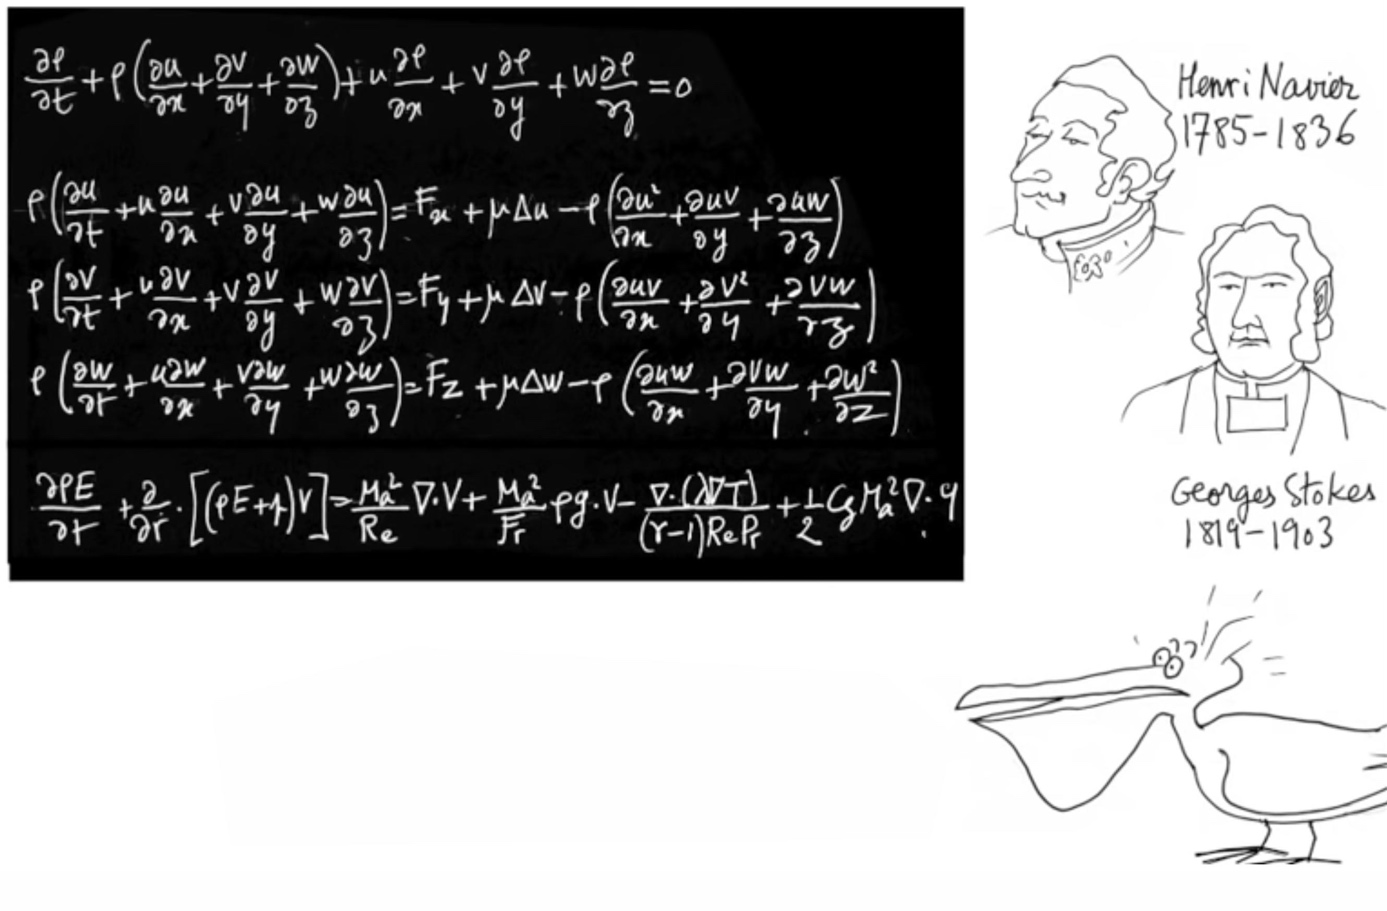 ∂ρ/∂t + ρ(∂u/∂x + ∂v/∂y + ∂w/∂z) + u ∂ρ/∂x + v ∂ρ/∂y + w ∂ρ/∂z = 0
ρ(∂u/∂t + u ∂u/∂x + v ∂u/∂y + w ∂u/∂z) = Fx + μΔu − ρ(∂u²/∂x + ∂uv/∂y + ∂uw/∂z)
ρ(∂v/∂t + u ∂v/∂x + v ∂v/∂y + w ∂v/∂z) = Fy + μΔv − ρ(∂uv/∂x + ∂v²/∂y + ∂vw/∂z)
ρ(∂w/∂t + u ∂w/∂x + v ∂w/∂y + w ∂w/∂z) = Fz + μΔw − ρ(∂uw/∂x + ∂vw/∂y + ∂w²/∂z)
∂ρE/∂t + ∂/∂r · [(ρE+p)V] = Ma²/Re ∇·V + Ma²/Fr ρg·V − ∇·(λ∇T)/(γ−1)RePr + 1/2 Cg Ma² ∇·q
Henri Navier
1785-1836
Georges Stokes
1819-1903